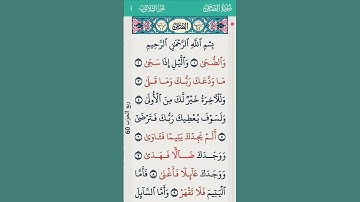 سُورَةُ الضُّحَىٰ
الضُّحَىٰ
بِسْمِ اللَّهِ الرَّحْمَٰنِ الرَّحِيمِ
وَالضُّحَىٰ ۝١ وَاللَّيْلِ إِذَا سَجَىٰ ۝٢
مَا وَدَّعَكَ رَبُّكَ وَمَا قَلَىٰ ۝٣
وَلَلْآخِرَةُ خَيْرٌ لَّكَ مِنَ الْأُولَىٰ ۝٤
وَلَسَوْفَ يُعْطِيكَ رَبُّكَ فَتَرْضَىٰ ۝٥
أَلَمْ يَجِدْكَ يَتِيمًا فَآوَىٰ ۝٦
وَوَجَدَكَ ضَالًّا فَهَدَىٰ ۝٧
وَوَجَدَكَ عَائِلًا فَأَغْنَىٰ ۝٨ فَأَمَّا
الْيَتِيمَ فَلَا تَقْهَرْ ۝٩ وَأَمَّا السَّائِلَ
ربع الحزب 60